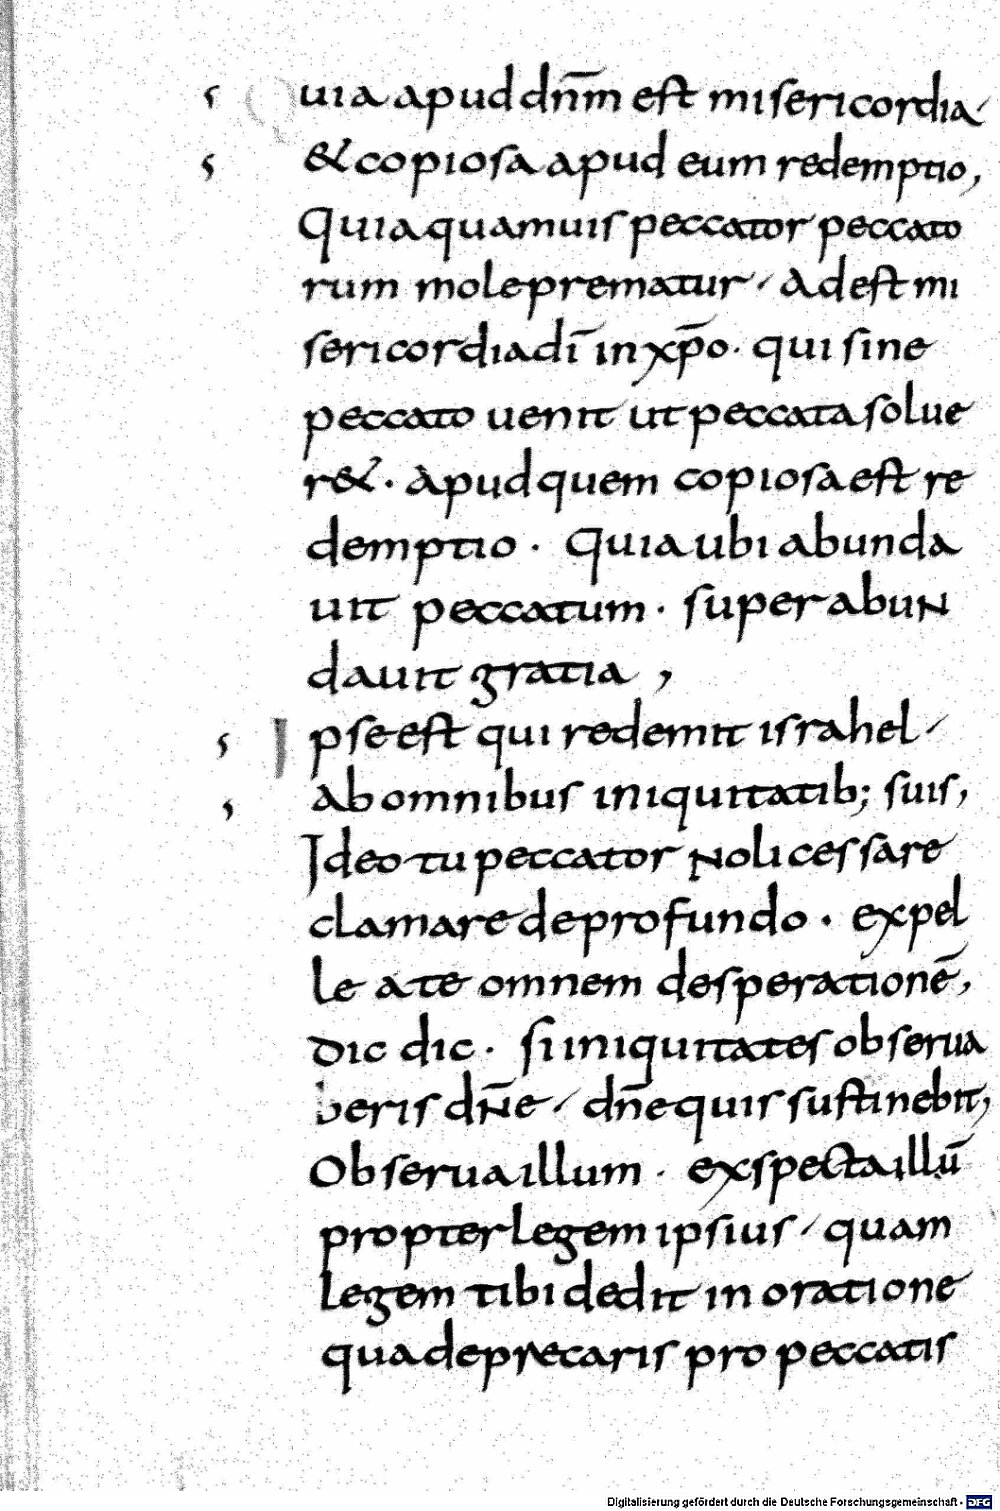 Quia apud dn̄m est misericordia
& copiosa apud eum redemptio,
Quia quamuis peccator peccato
rum mole prematur / Adest mi
sericordia dī in xp̄o · qui sine
peccato uenit ut peccata solue
r&· Apud quem copiosa est re
demptio · Quia ubi abunda
uit peccatum · superabun
dauit gratia ,
Ipse est qui redemit israhel /
ab omnibus iniquitatib; suis,
Ideo tu peccator noli cessare
clamare de profundo · expel
le a te omnem desperationē,
Dic dic · si iniquitates obserua
beris dn̄e / dn̄e quis sustinebit,
Obserua illum · exspecta illū
propter legem ipsius / quam
legem tibi dedit in oratione
qua deprecaris pro peccatis
Digitalisierung gefördert durch die Deutsche Forschungsgemeinschaft - DFG